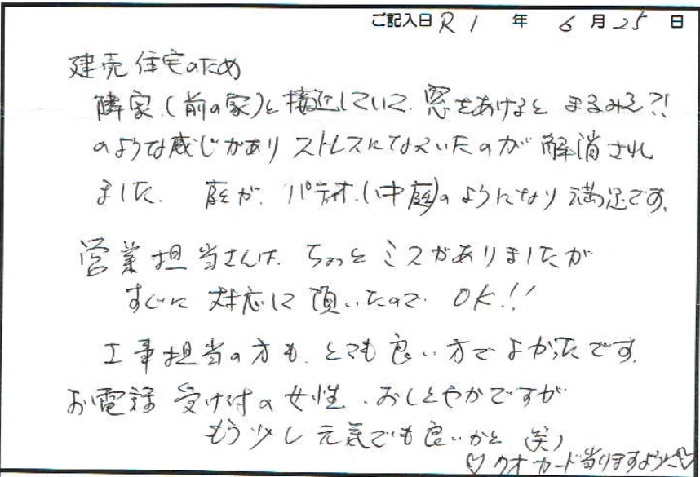 ご記入日 R1 年 6 月 25 日
建売住宅のため
隣家(前の家)と接近していて、窓をあけると まるみえ?!
のような感じがあり ストレスになっていたのが 解消され
ました. 庭が、パティオ.(中庭)のようになり 満足です.
営業担当さんは、ちょっと ミスがありましたが
すぐに 対応して 頂いたので、OK!!
工事担当の方も、とても良い方でよかったです.
お電話 受け付の女性、おしとやかですが
もう少し 元気でも良いかと (笑)
♡クオカード当りますように♡